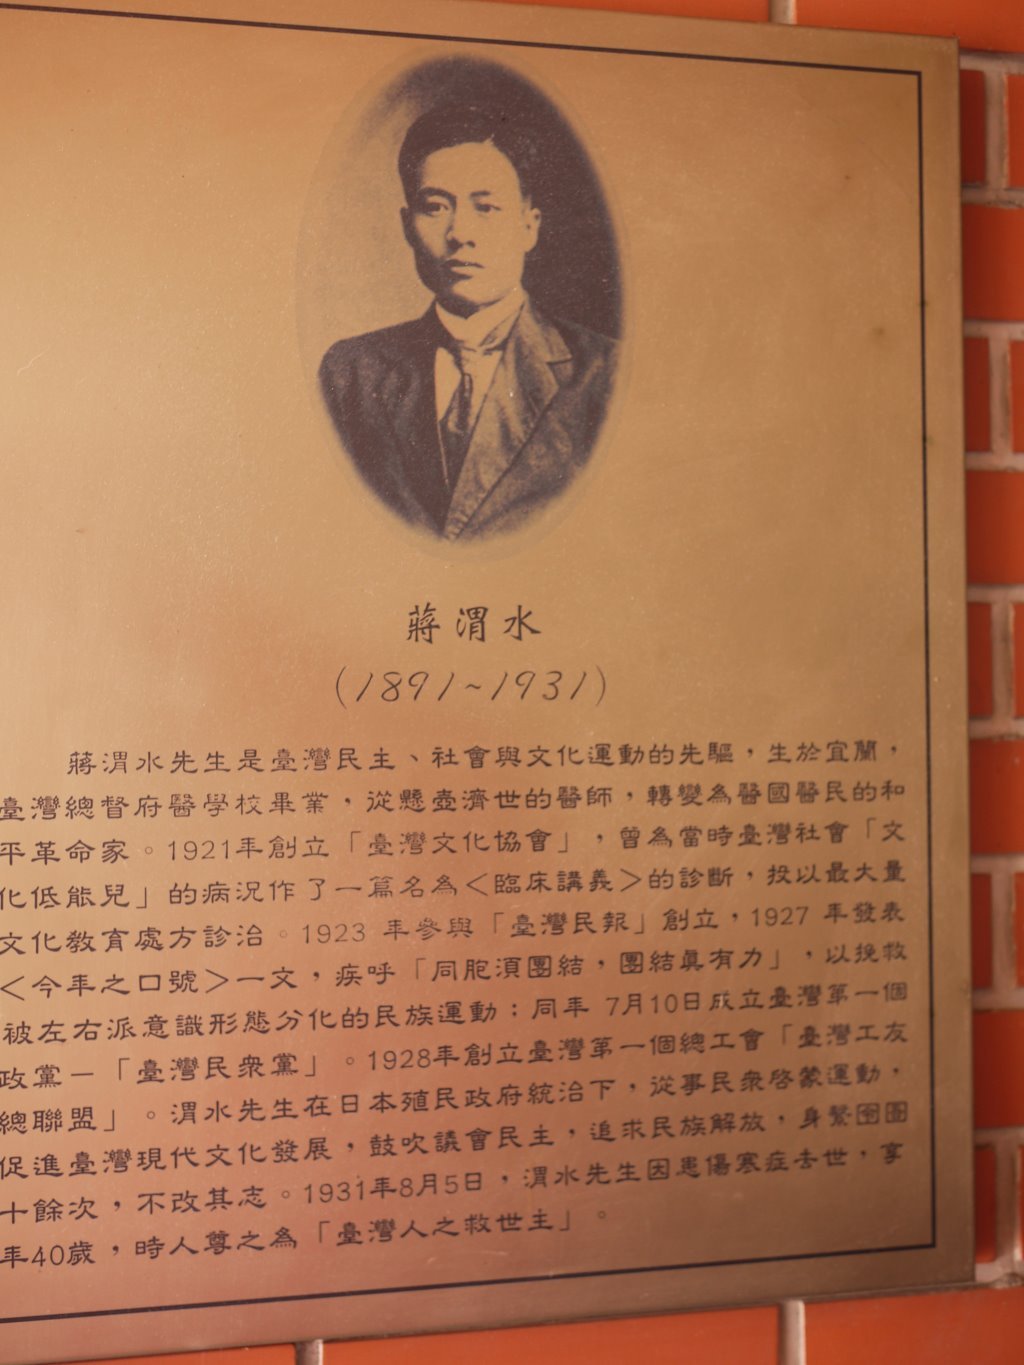 蔣渭水
(1891~1931)
蔣渭水先生是臺灣民主、社會與文化運動的先驅，生於宜蘭，
臺灣總督府醫學校畢業，從懸壺濟世的醫師，轉變為醫國醫民的和
平革命家。1921年創立「臺灣文化協會」，曾為當時臺灣社會「文
化低能兒」的病況作了一篇名為＜臨床講義＞的診斷，投以最大量
文化教育處方診治。1923 年參與「臺灣民報」創立，1927 年發表
＜今年之口號＞一文，疾呼「同胞須團結，團結真有力」，以挽救
被左右派意識形態分化的民族運動；同年 7月10日成立臺灣第一個
政黨－「臺灣民衆黨」。1928年創立臺灣第一個總工會「臺灣工友
總聯盟」。渭水先生在日本殖民政府統治下，從事民衆啓蒙運動，
促進臺灣現代文化發展，鼓吹議會民主，追求民族解放，身繫囹圄
十餘次，不改其志。1931年8月5日，渭水先生因患傷寒症去世，享
年40歲，時人尊之為「臺灣人之救世主」。